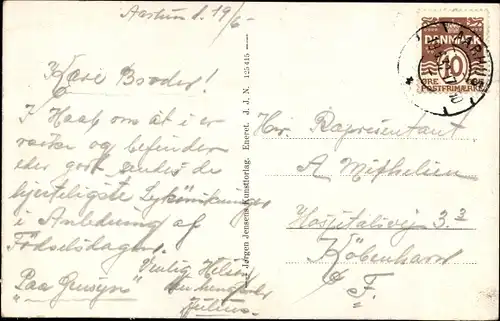 19/6-
Kære Broder!
I Haab om at i er
raske og befinder
eder godt sendes de
hjerteligste Lykønskninger
i Anledning af
Fødselsdagen.
Venlig Hilsen
"Paa Gensyn"
Julius.
J. Jørgen Jensens Kunstforlag. Eneret. J. J. N. 125415
DANMARK
10
ØRE
POSTFRIMÆRKE
AARHUS
Hr. Repræsentant
A
Hospitalsvej 3.3
København
F.